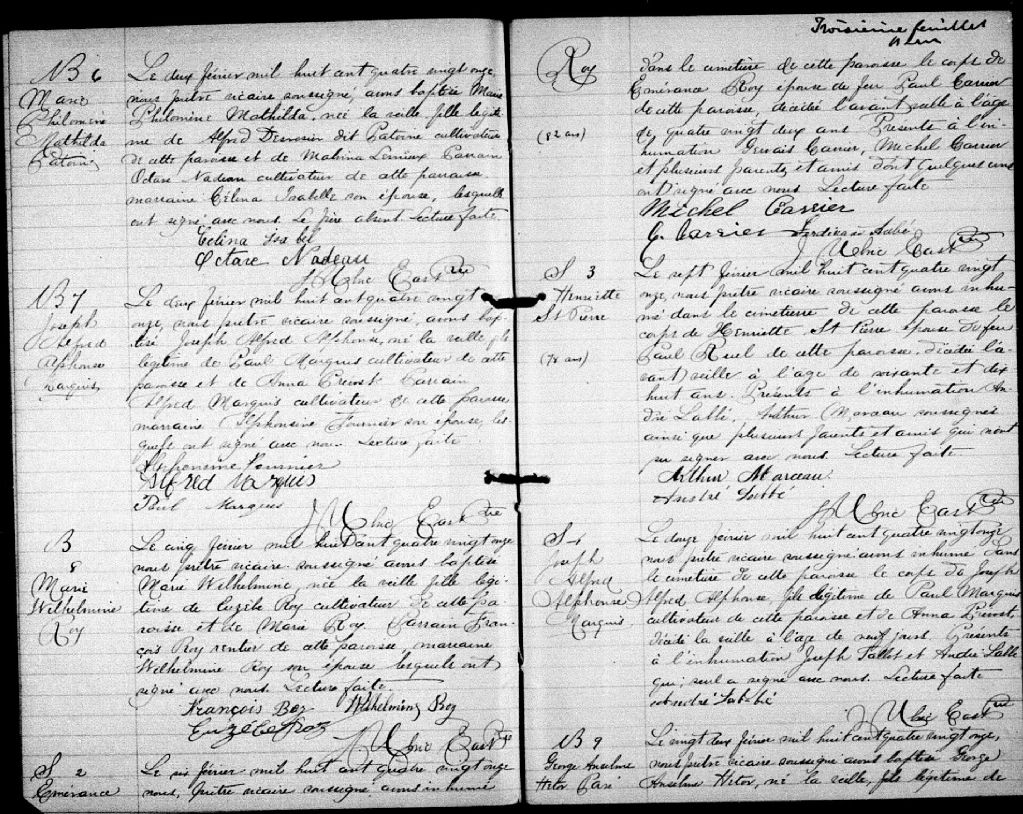 B 6
Marie
Philomène
Mathilda
Patoine
Le deux février mil huit cent quatre vingt onze,
nous prêtre vicaire soussigné, avons baptisé Marie
Philomène Mathilda, née la veille fille légiti-
me de Alfred dit Patoine cultivateur
de cette paroisse et de Malvina Lemieux Parrain
Octave Nadeau cultivateur de cette paroisse
marraine Célina Isabelle son épouse, lesquels
ont signé avec nous. Le père absent Lecture faite
Celina Isabel
Octave Nadeau
Ptre
B 7
Joseph
Alfred
Alphonse
Marquis
Le deux février mil huit cent quatre vingt
onze, nous prêtre vicaire soussigné, avons bap-
tisé Joseph Alfred Alphonse, né la veille, fils
légitime de Paul Marquis cultivateur de cette
paroisse et de Anna Prevost Parrain
Alfred Marquis cultivateur de cette paroisse
marraine Alphonsine Fournier son épouse, les-
quels ont signé avec nous. Lecture faite
Alphonsine Fournier
Alfred Marquis
Paul Marquis
Ptre
B
8
Marie
Wilhelmine
Roy
Le cinq février mil huit cent quatre vingt onze
nous prêtre vicaire soussigné avons baptisé
Marie Wilhelmine, née la veille fille légi-
time de Roy cultivateur de cette pa-
roisse et de Marie Roy Parrain Fran-
çois Roy rentier de cette paroisse, marraine
Wilhelmine Roy son épouse lesquels ont
signé avec nous. Lecture faite.
François Roy Wilhelmine Roy
Ptre
S 2
Emérance
Le six février mil huit cent quatre vingt onze
nous, prêtre vicaire soussigné avons inhumé
Troisième feuillet
Roy
(82 ans)
dans le cimetière de cette paroisse le corps de
Emérance Roy épouse de feu Paul Carrier
de cette paroisse décédée l'avant veille à l'âge
de, quatre vingt deux ans Présents à l'in-
humation Gervais Carrier, Michel Carrier
et plusieurs parents, et amis dont quelques uns
ont signé avec nous Lecture faite
Michel Carrier
G. Carrier Ferdinand Aubé
Ptre
S 3
Henriette
St Pierre
(78 ans)
Le sept février mil huit cent quatre vingt
onze, nous prêtre vicaire soussigné avons inhu-
mé dans le cimetière de cette paroisse le
corps de Henriette St Pierre épouse de feu
Paul Ruel de cette paroisse, décédée l'a-
vant veille à l'âge de soixante et dix
huit ans. Présents à l'inhumation An-
dré Labbé, Arthur Moreau soussignés
ainsi que plusieurs parents et amis qui n'ont
pu signer avec nous. Lecture faite
Arthur Moreau
André Labbé
Ptre
S 4
Joseph
Alfred
Alphonse
Marquis
Le douze février mil huit cent quatre vingt onze
nous prêtre vicaire soussigné avons inhumé dans
le cimetière de cette paroisse le corps de Joseph
Alfred Alphonse, fils légitime de Paul Marquis
cultivateur de cette paroisse et de Anna Prevost
décédé la veille à l'âge de neuf jours. Présents
à l'inhumation Joseph Tallot et André Labbé
qui, seul a signé avec nous. Lecture faite
André Labbé
Ptre
B 9
George Anselme
Hector
Le vingt deux février mil huit cent quatre vingt onze,
nous prêtre vicaire soussigné avons baptisé George
Anselme Hector, né la veille, fils légitime de